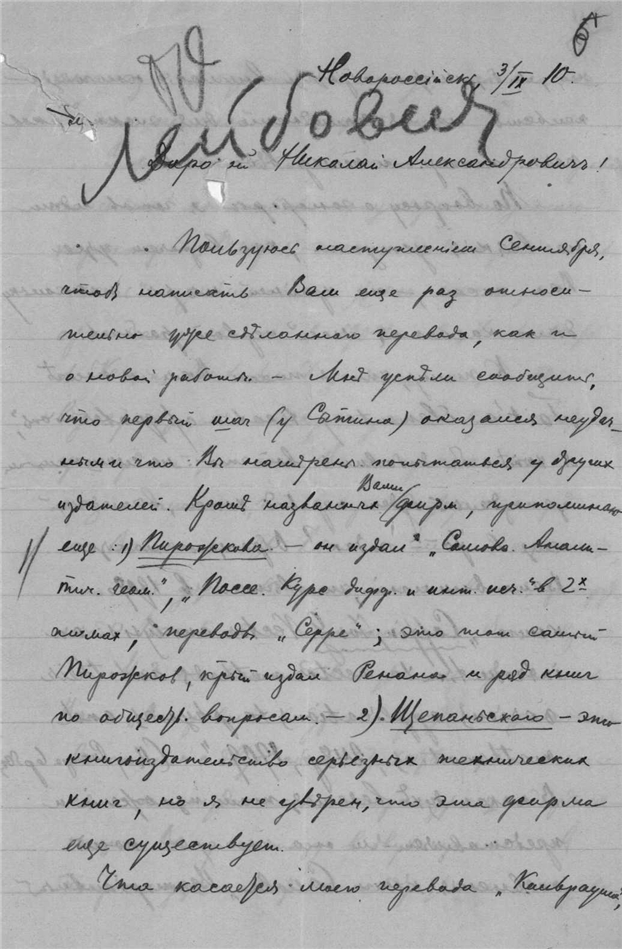 Новороссійскъ 3/IX 10.
Лейбович
Николай Александровичъ!
Пользуюсь наступленіемъ Сентября,
чтобы написать Вам еще раз относи-
тельно уже сдѣланного перевода, как и
о новой работѣ. – Мнѣ успѣли сообщить,
что первый шаг (у Сытина) оказался неудач-
ным и что Вы намѣрены попытаться у других
издателей. Кромѣ названных Вами фирм, припоминаю
еще 1) Пирожкова – он издал „Сомова. Анали-
тич. геом.", „Поссе. Курс дифф. и инт. исч." в 2х
томах, перевод „Серре"; это тот самый
Пирожков, крый издал Ренана и ряд книг
по обществ. вопросам. – 2). Щепаньского – это
книгоиздательство серьезных технических
книг, но я не увѣрен, что эта фирма
еще существует.
Что касается моего перевода